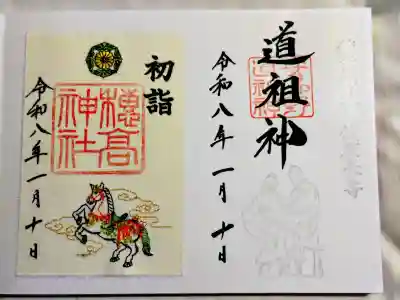 道祖神
令和八年一月十日
初詣
穂高
神社
令和八年一月十日